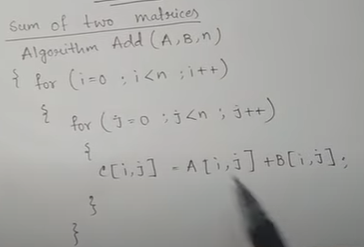 Sum of two matrices
Algorithm Add (A, B, n)
{ for (i=0 ; i<n ; i++)
{ for (j=0 ; j<n ; j++)
{
C[i,j] = A[i,j] + B[i,j];
}
}